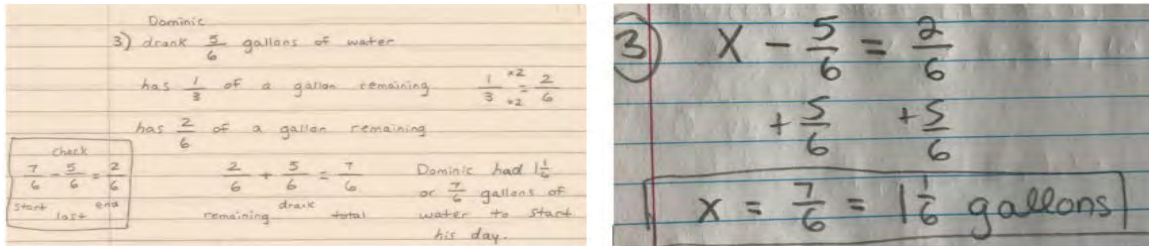 Dominic
3) drank 5/6 gallons of water
has 1/3 of a gallon remaining 1/3 ×2/×2 = 2/6
has 2/6 of a gallon remaining
check
7/6 - 5/6 = 2/6
start last end
2/6 + 5/6 = 7/6
remaining drank total
Dominic had 1 1/6
or 7/6 gallons of
water to start
his day.
3 x - 5/6 = 2/6
+ 5/6 + 5/6
x = 7/6 = 1 1/6 gallons